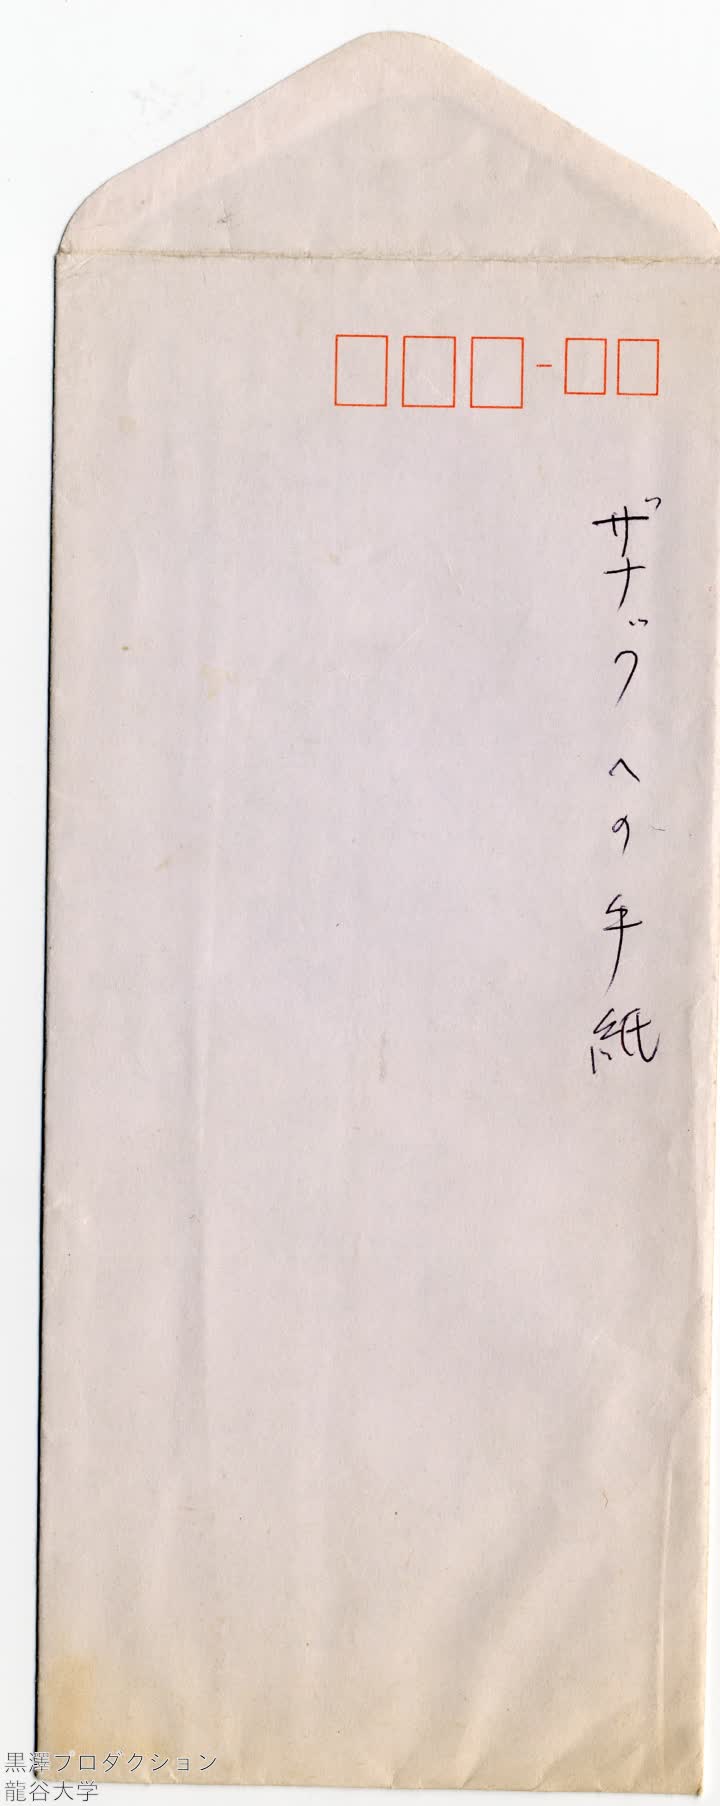 ザナックへの手紙
黒澤プロダクション
龍谷大学